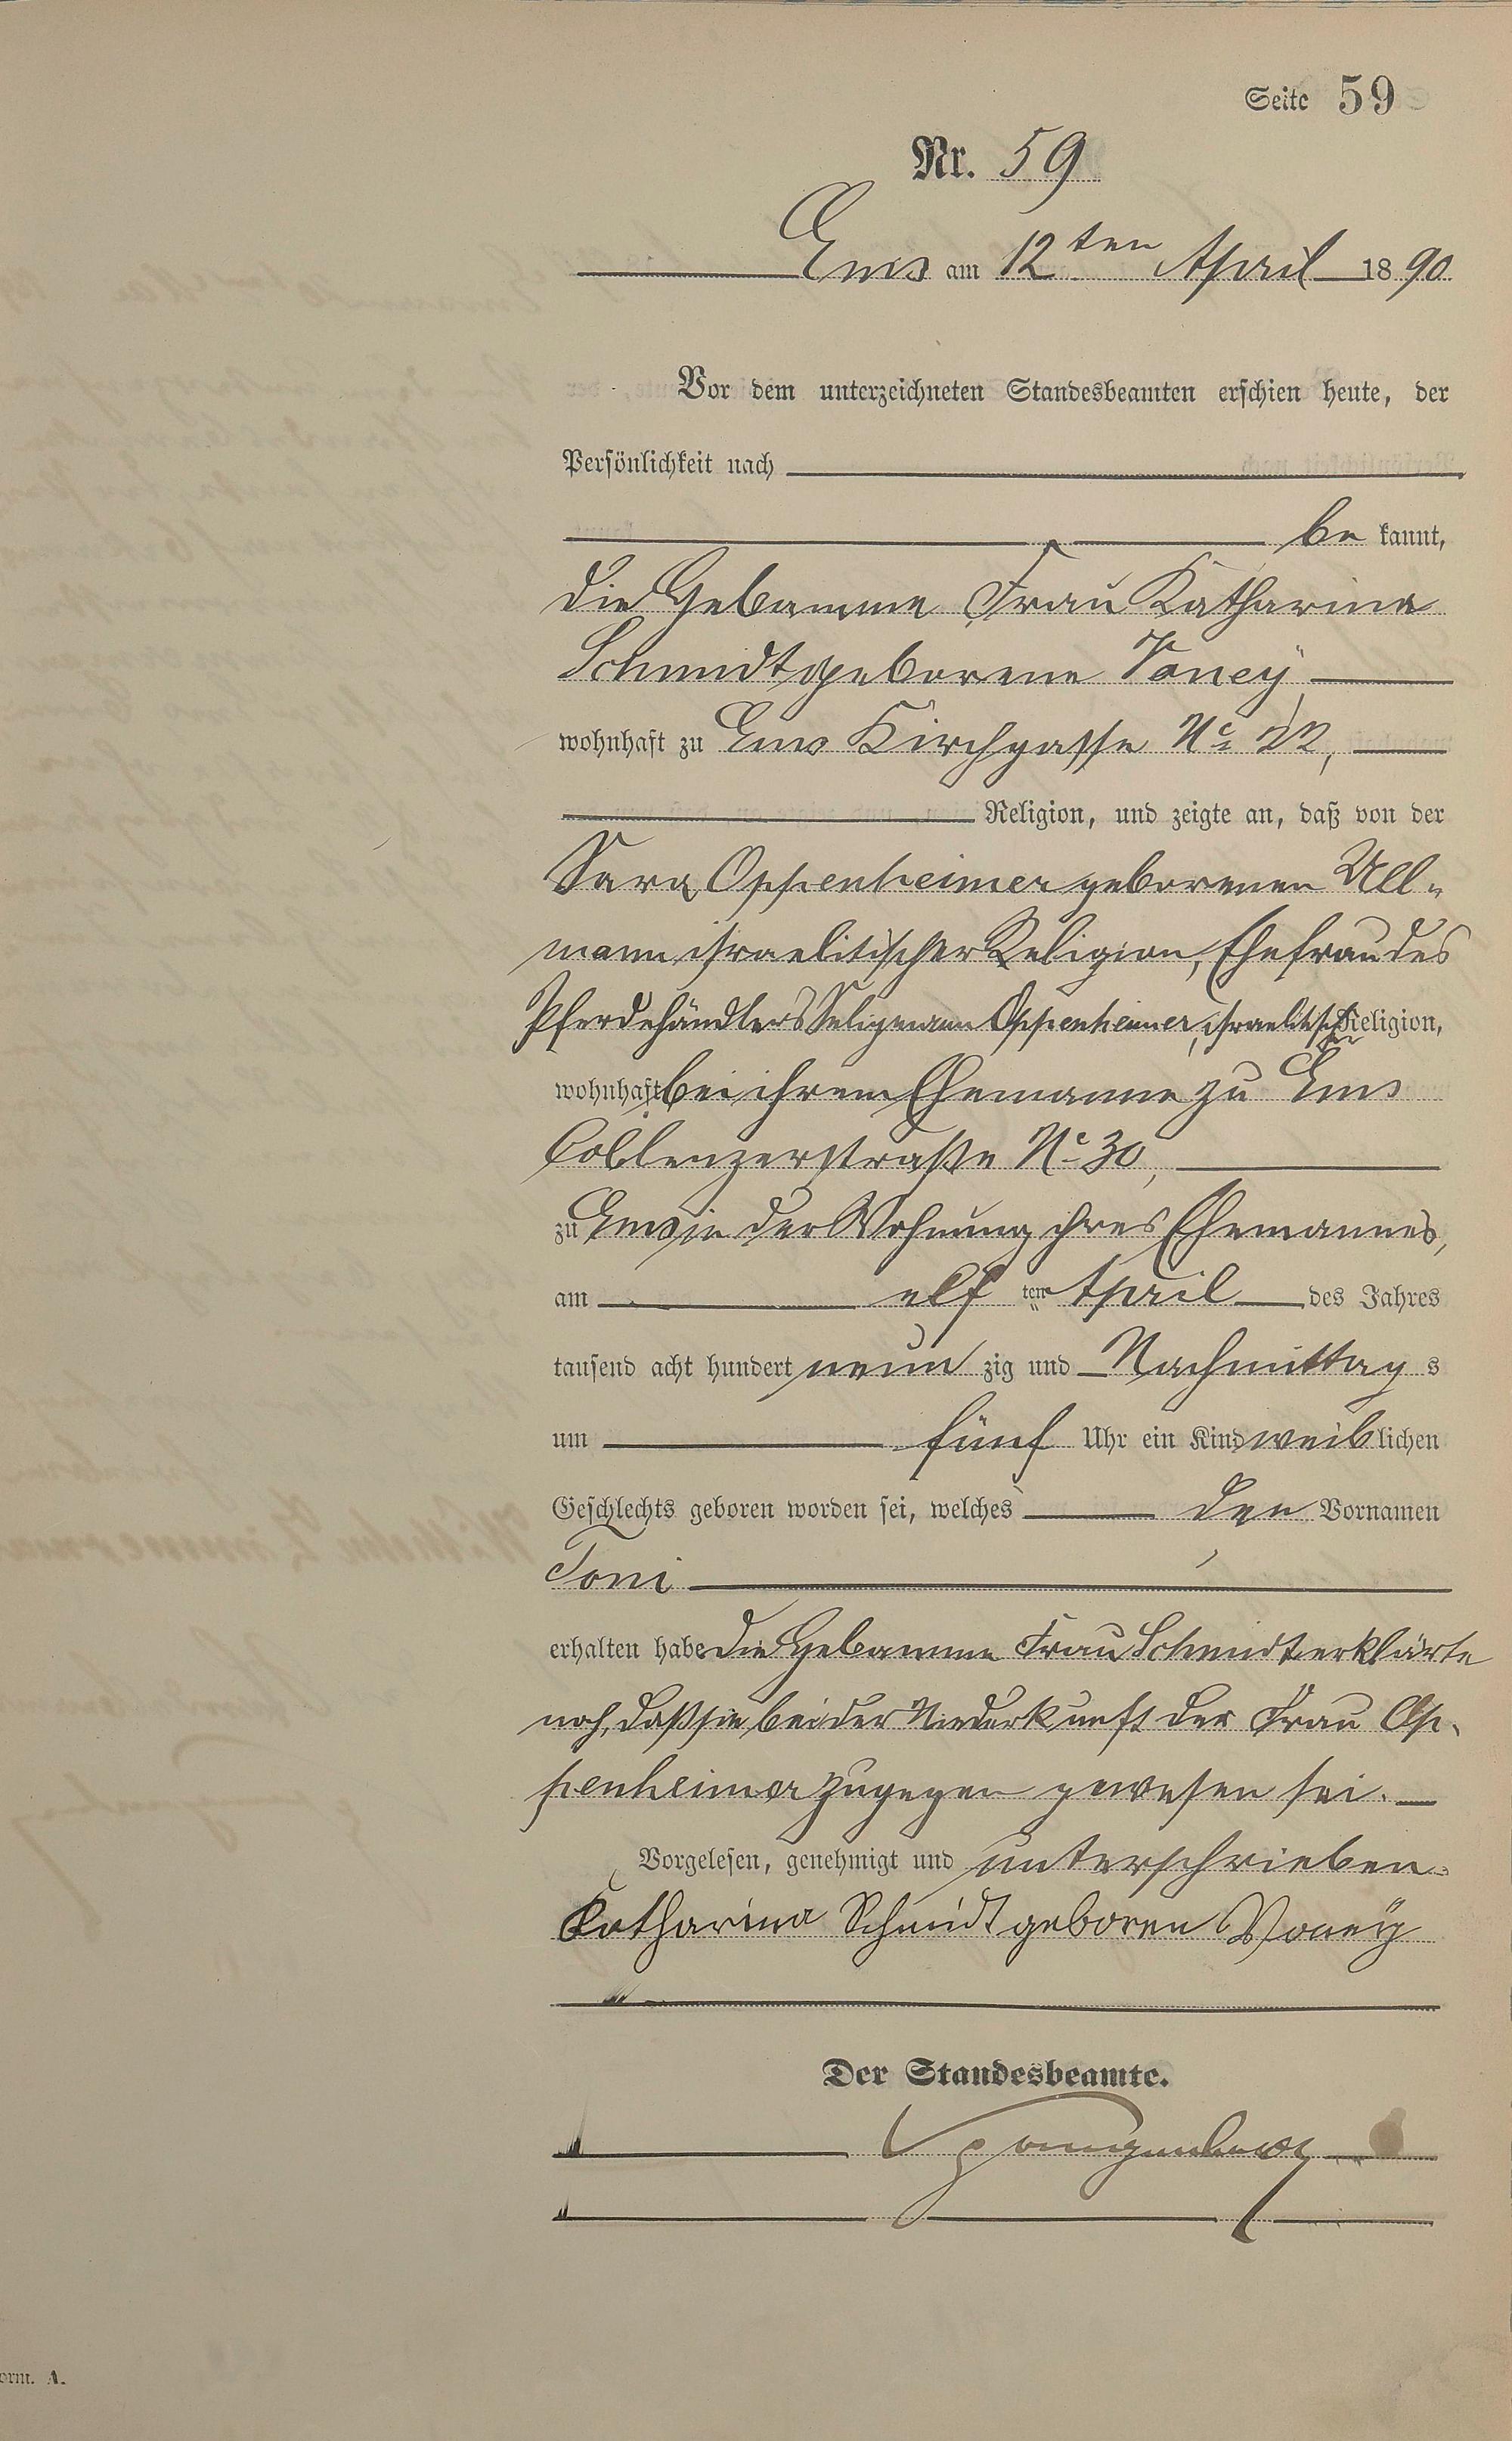 Seite 59
Nr. 59
Ems am 12ten April 1890
Vor dem unterzeichneten Standesbeamten erschien heute, der
Persönlichkeit nach
bekannt,
die Hebamme Frau Katharina
Schmidt geborene
wohnhaft zu Ems Kirchgasse No 22,
Religion, und zeigte an, daß von der
Sara Oppenheimer geborenen Ull-
mann israelitischer Religion, Ehefrau des
Pferdehändlers Seligmann Oppenheimer, israelitischer Religion,
wohnhaft bei ihrem Ehemanne zu Ems
Coblenzerstraße No 30,
zu Ems in der Wohnung ihres Ehemannes,
am elften April des Jahres
tausend acht hundert neunzig und Nachmittags
um fünf Uhr ein Kind weiblichen
Geschlechts geboren worden sei, welches den Vornamen
Toni
erhalten habe. Die Hebamme Frau Schmidt erklärte
noch, daß sie bei der Niederkunft der Frau Op-
penheimer zugegen gewesen sei.
Vorgelesen, genehmigt und unterschrieben.
Katharina Schmidt geboren
Der Standesbeamte.
orm. A.